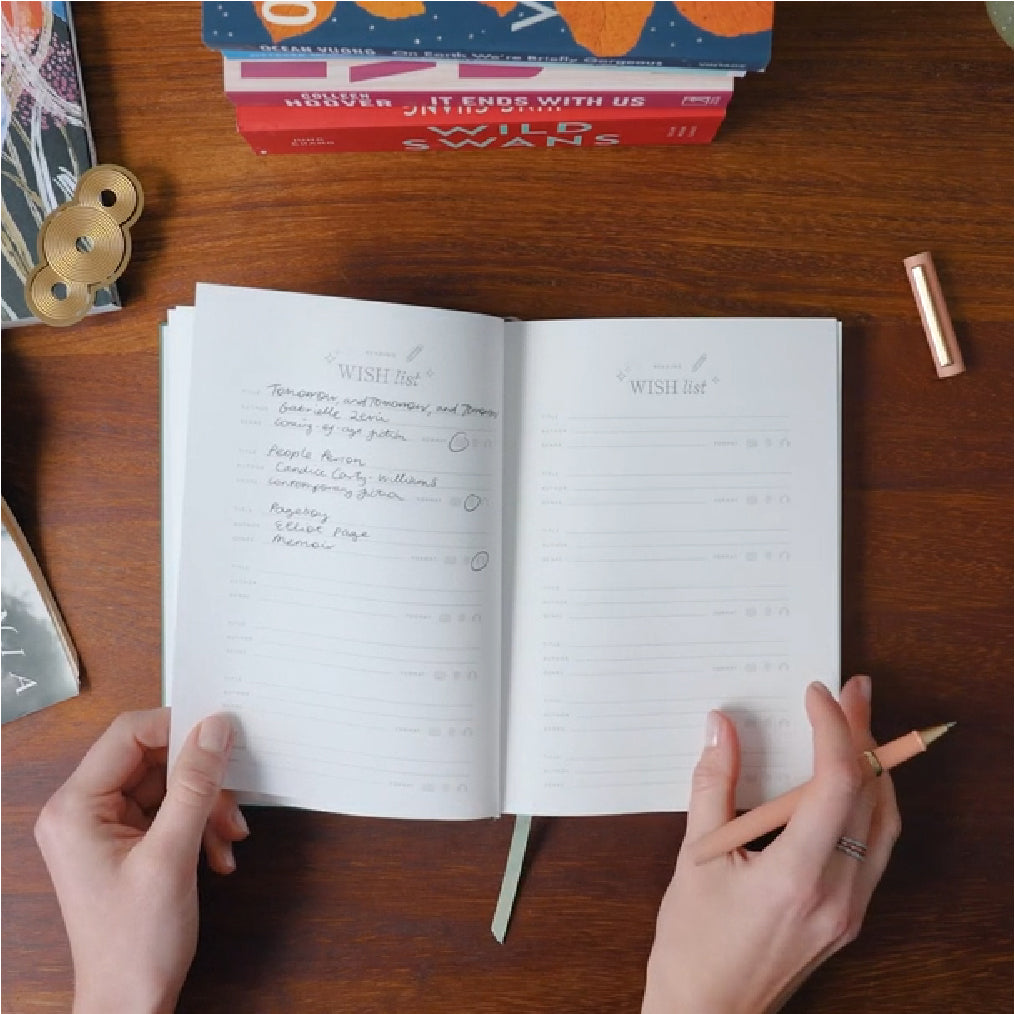 OCEAN VUONG On Earth We're Briefly Gorgeous VINTAGE
COLLEEN HOOVER IT ENDS WITH US
JUNG CHANG WILD SWANS
READING
WISH list
TITLE Tomorrow, and Tomorrow, and Tomorrow
AUTHOR Gabrielle Zevin
GENRE Coming-of-age fiction FORMAT
TITLE People Person
AUTHOR Candice Carty-Williams
GENRE Contemporary fiction FORMAT
TITLE Pageboy
AUTHOR Elliot Page
GENRE Memoir
FORMAT
TITLE
AUTHOR
GENRE
FORMAT
TITLE
AUTHOR
GENRE
FORMAT
TITLE
AUTHOR
GENRE
FORMAT
FORMAT
READING
WISH list
TITLE
AUTHOR
GENRE FORMAT
TITLE
AUTHOR
GENRE FORMAT
TITLE
AUTHOR
GENRE FORMAT
TITLE
AUTHOR
GENRE FORMAT
TITLE
AUTHOR
GENRE FORMAT
TITLE
AUTHOR
GENRE
TITLE
AUTHOR
GENRE